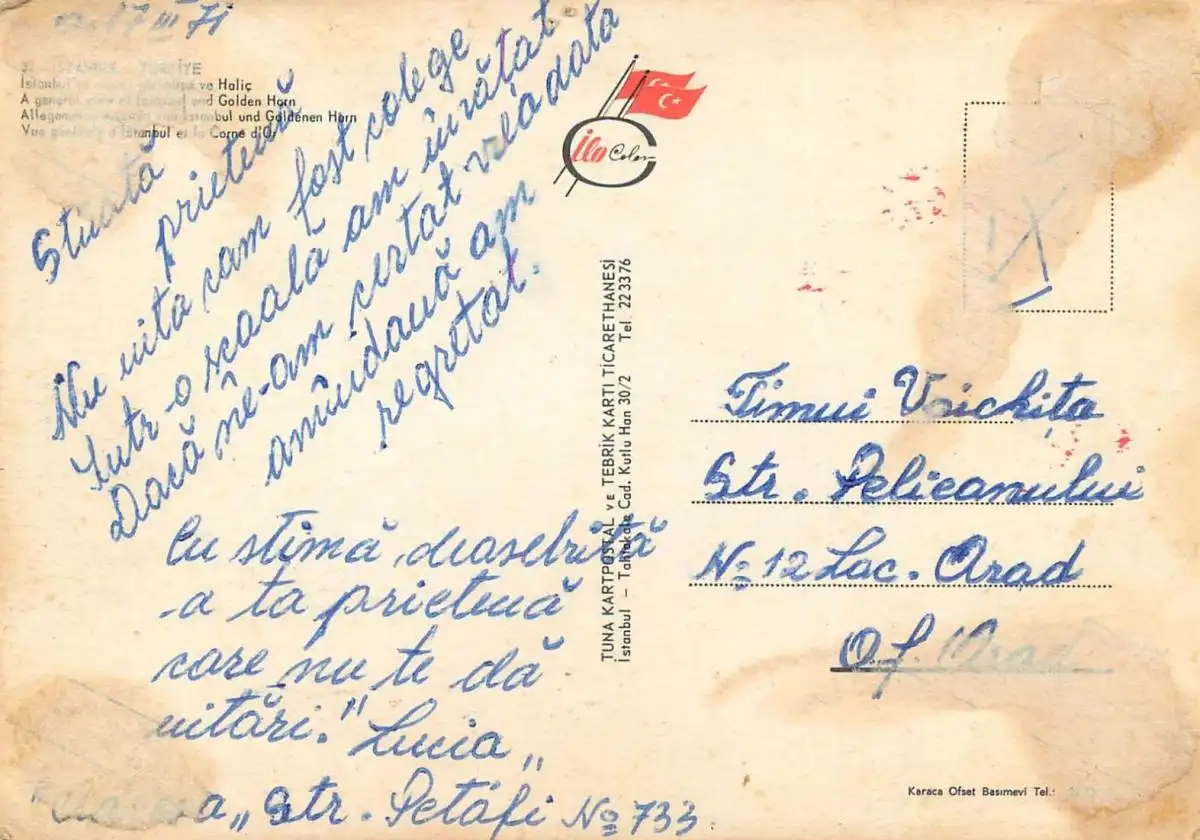 17 III 71
İstanbul ve Haliç
A general view of Istanbul and Golden Horn
Istanbul und Goldenen Horn
Vue générale d'Istanbul et la Corne d'Or
Stimată
prietenă
Nu uita cam fost colege
Intr-o scoală am învătat
Dacă ne-am certat vreădată
amîndouă am
regretat.
Cu stimă deasebită
a ta prietenă
care nu te dă
uitări." Lucia „
„ Str. Petőfi No 733
ilo Color
TUNA KARTPOSTAL VE TEBRİK KARTI TİCARETHANESİ
İstanbul – Tahtakale Cad. Kutlu Han 30/2 Tel. 223376
Timui Voichița
Str. Pelicanului
No 12 Loc. Arad
O.f. Arad
Karaca Ofset Basımevi Tel.: